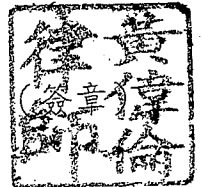 黃偉倫
律師
(簽章)